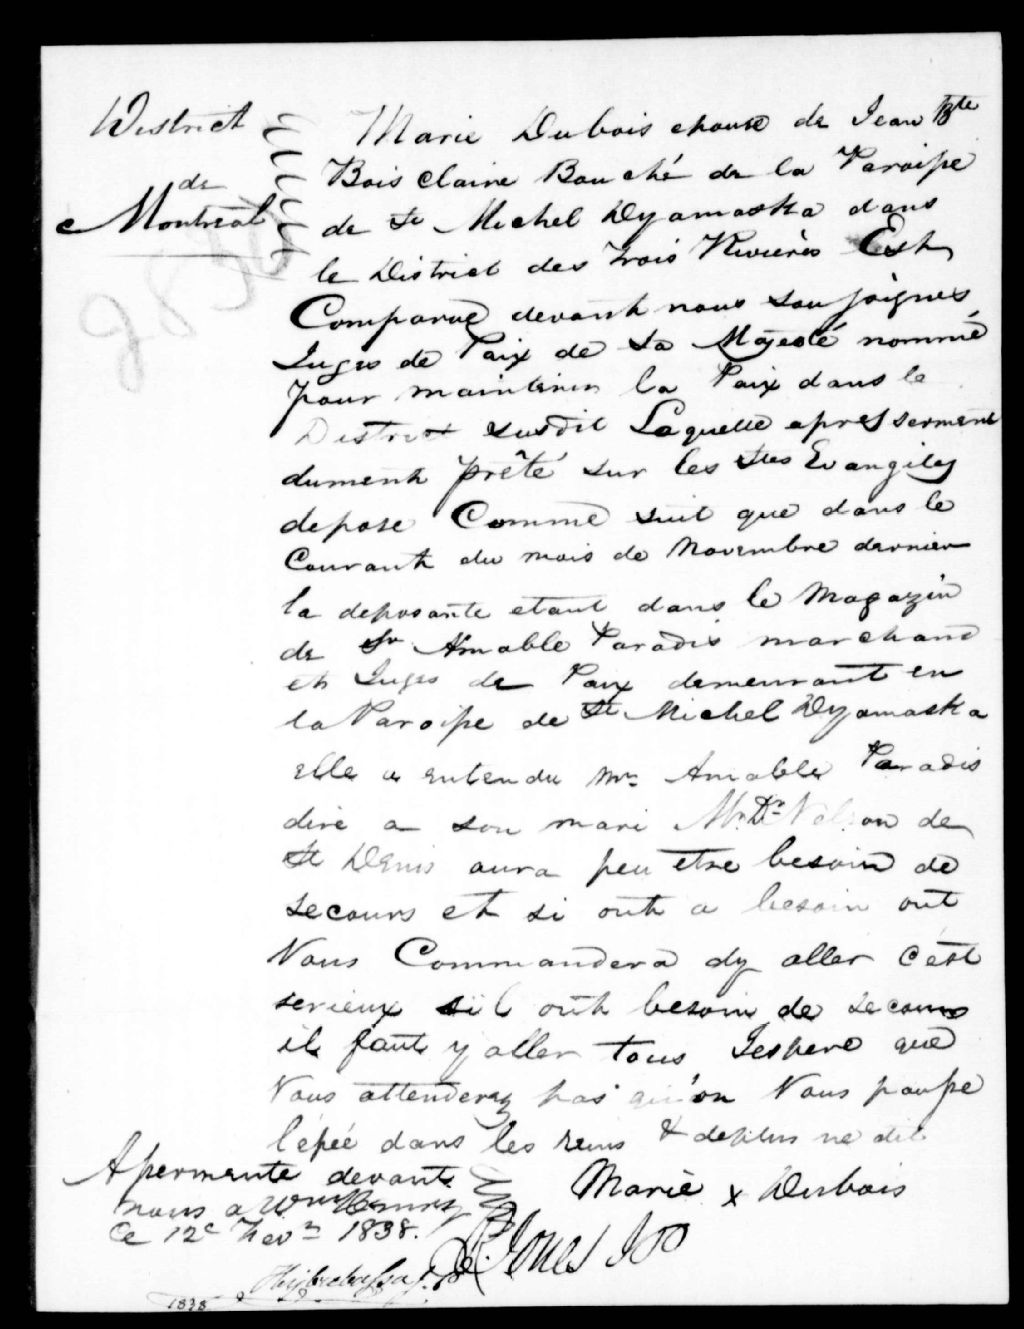 District
de
Montreal
Marie Dubois epouse de Jean Bte
Bois Claire Bouché de la Paroisse
de St Michel Dyamaska dans
le District des Trois Rivières Est
Comparue devant nous soussignés
Juges de Paix de Sa Majesté nommé
pour maintenir la Paix dans le
District susdit Laquelle apres serment
dument prêté sur les Stes Evangiles
depose Comme suit que dans le
Courant du mois de Novembre dernier
la deposante etant dans le Magazin
de Sr Amable Paradis marchand
et Juges de Paix demeurant en
la Paroisse de St Michel Dyamaska
elle a entendu Mr Amable Paradis
dire a son mari Mr Dr Nelson de
St Denis aura peu etre besoin de
secours et si ont a besoin ont
Nous Commandera dy aller c'est
serieux sil ont besoin de secours
il faut y aller tous Jespere que
Vous attenderez pas qu'on Vous pousse
l'épée dans les reins & deplus ne dit
Marie x Dubois
Asermente devant
nous a Wm Henry
Ce 12e Fevr 1838.
R. Jones JP
1838